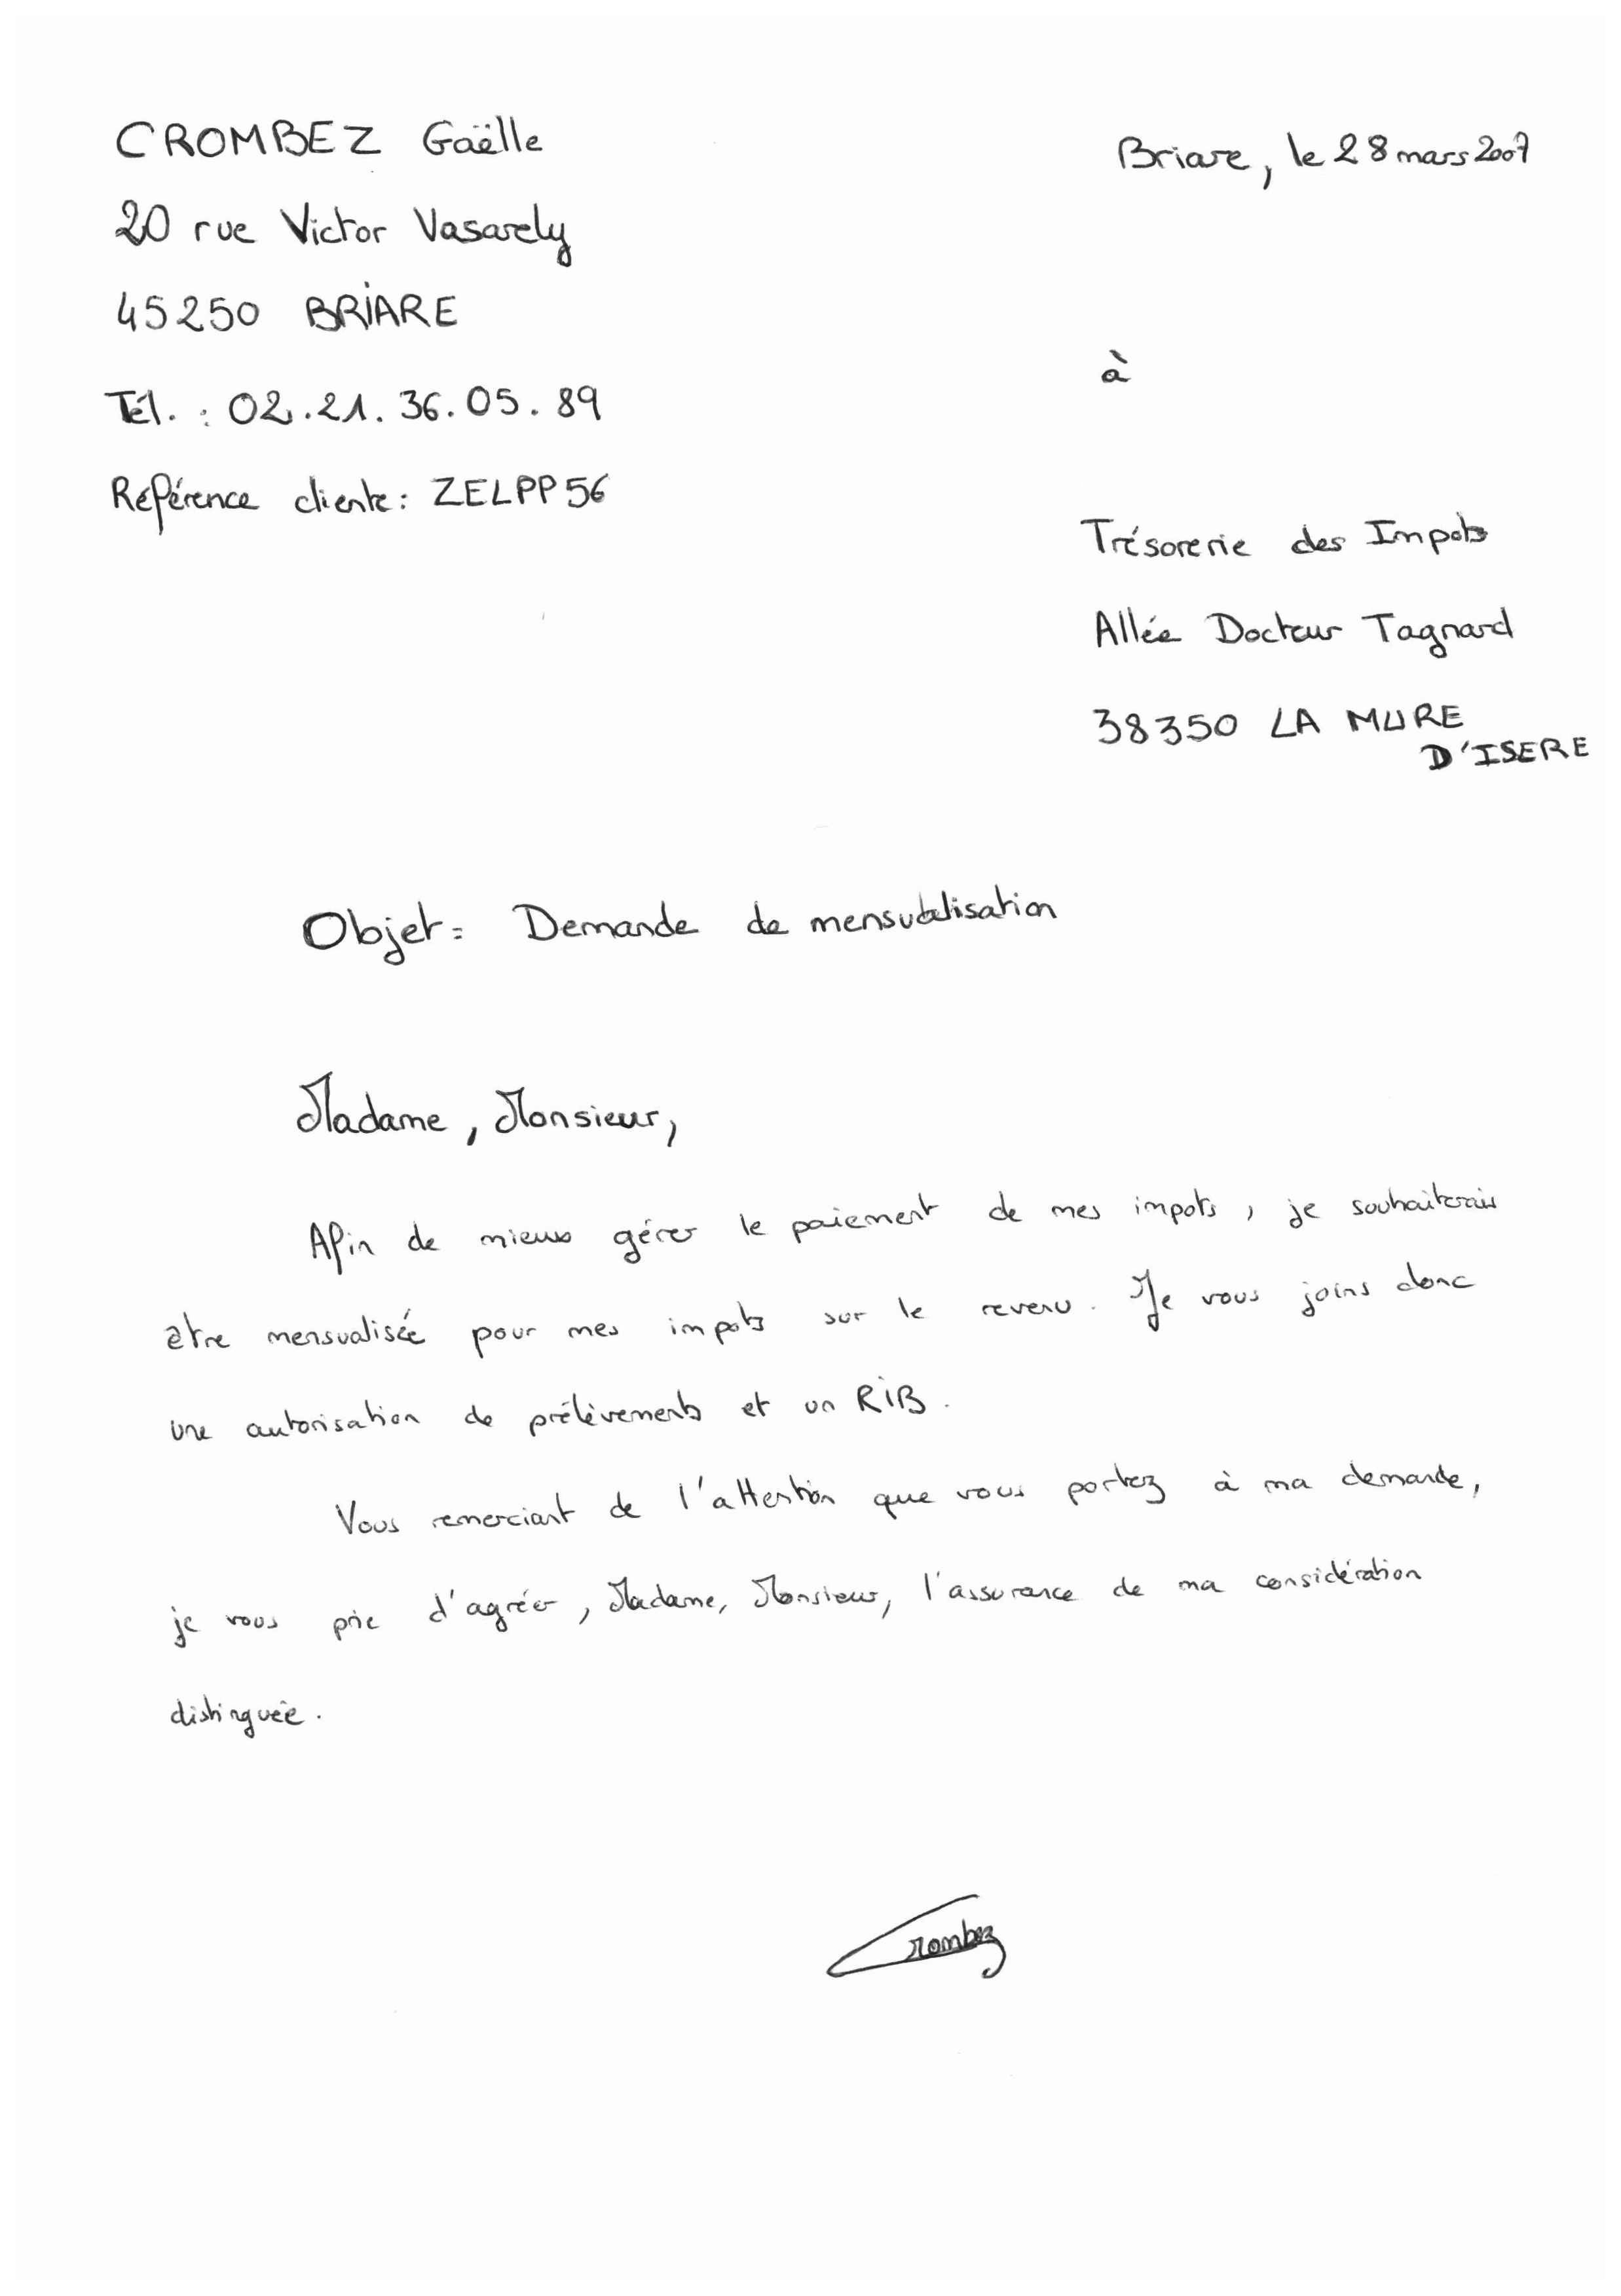 CROMBEZ Gaëlle
20 rue Victor Vasarely
45250 BRIARE
Tél. : 02.21.36.05.89
Référence cliente : ZELPP56
Briare, le 28 mars 2007
à
Trésorerie des Impots
Allée Docteur Tagnard
38350 LA MURE
D'ISERE
Objet : Demande de mensualisation
Madame, Monsieur,
Afin de mieux gérer le paiement de mes impots, je souhaiterais
être mensualisée pour mes impots sur le revenu. Je vous joins donc
une autorisation de prélèvements et un RIB.
Vous remerciant de l'attention que vous portez à ma demande,
je vous prie d'agréer, Madame, Monsieur, l'assurance de ma considération
distinguée.
Crombez